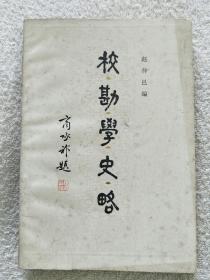 赵仲邑编
校勘學史略
商承祚題